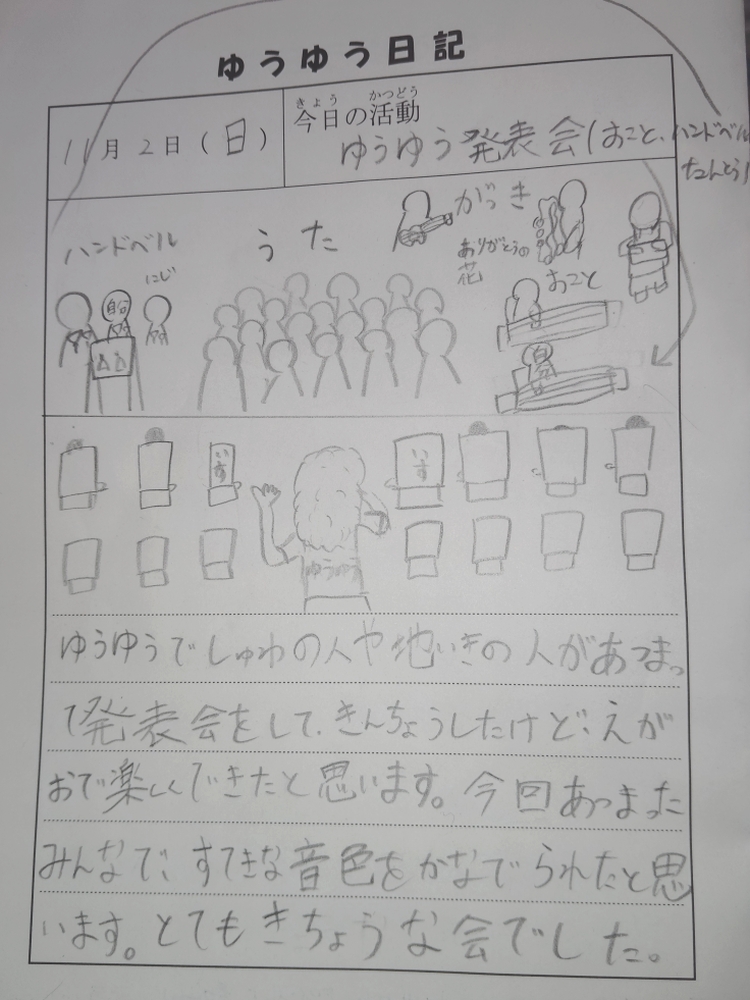 ゆうゆう日記
きょう かつどう
今日の活動
11月2日(日)
ゆうゆう発表会(おこと、ハンドベル
たんとう)
ハンドベル
うた
がっき
にじ
ありがとうの
花
おこと
自分
自分
いす
いす
ゆうゆう
ゆうゆうでしゅわの人や地いきの人があつまっ
て発表会をして、きんちょうしたけど、えが
おで楽しくできたと思います。今回あつまった
みんなで、すてきな音色をかなでられたと思
います。とてもきちょうな会でした。